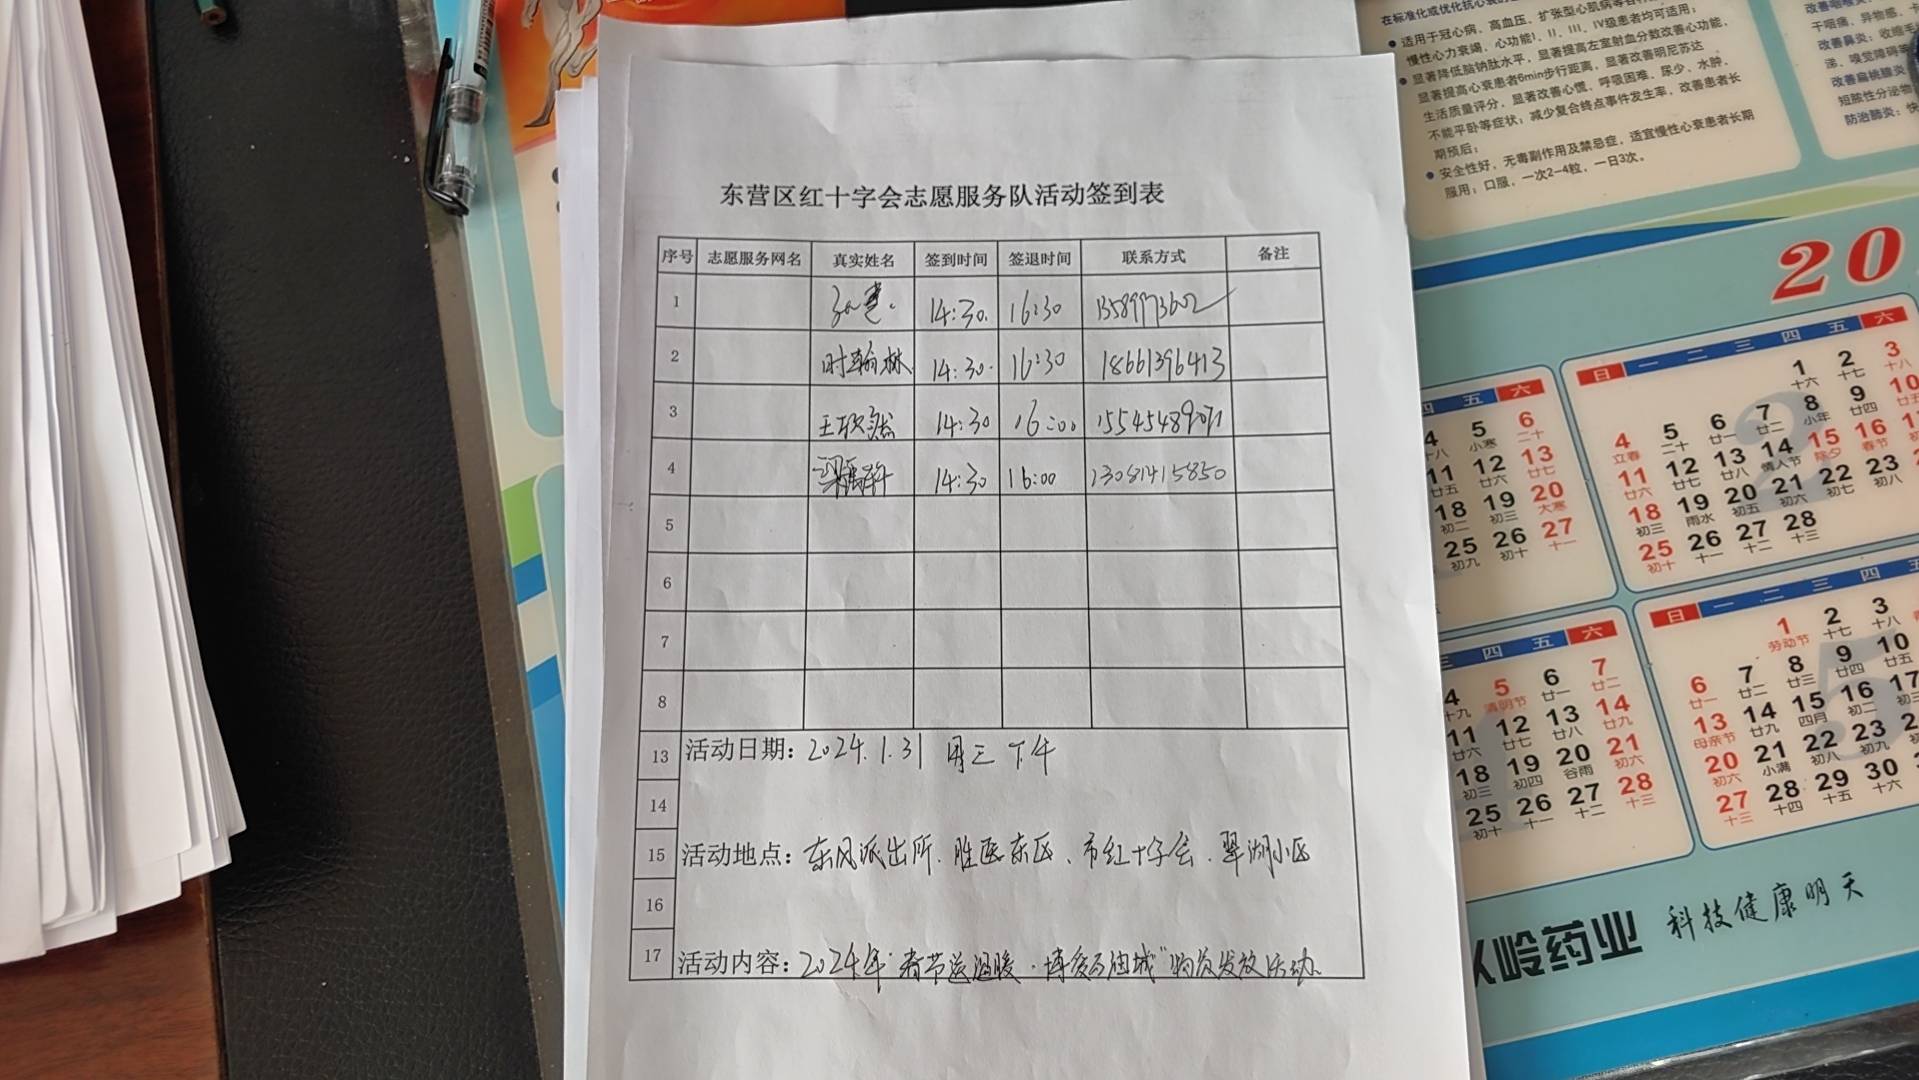 东营区红十字会志愿服务队活动签到表
序号 志愿服务网名 真实姓名 签到时间 签退时间 联系方式 备注
1 14:30. 16:30
2 时翰林 14:30. 16:30 18661396413
3 王 14:30 16:00
4 14:30 16:00 13081415850
5
6
7
8
13 活动日期: 2024.1.31 周三下午
14
15 活动地点: 东风派出所、胜医东区、市红十字会、翠湖小区
16
17 活动内容: 2024年"春节送温暖·博爱万油城"物资发放活动.
在标准化或优化抗心衰
适用于冠心病、高血压、扩张型心肌病等
慢性心力衰竭、心功能I、II、III、IV级患者均可适用;
显著降低脑钠肽水平,显著提高左室射血分数改善心功能,
显著提高心衰患者6min步行距离,显著改善明尼苏达
生活质量评分,显著改善心慌、呼吸困难、尿少、水肿、
不能平卧等症状;减少复合终点事件发生率,改善患者长
期预后;
安全性好,无毒副作用及禁忌症,适宜慢性心衰患者长期
服用;口服,一次2-4粒,一日3次。
干咽痛、异物感、
改善鼻炎:收缩毛
涕、嗅觉障碍等
改善扁桃腺炎
短肽性分泌物
防治肺炎:快
20
四 五 六
4 5 6
十八 小寒 二十
11 12 13
廿五 廿六 廿七
18 19 20
初二 初三 大寒
25 26 27
初九 初十 十一
日 一 二 三 四 五 六
1 2 3
十六 十七 十八
4 5 6 7 8 9 10
立春 二十 廿一 廿二 小年 廿四 廿五
11 12 13 14 15 16
廿六 廿七 廿八 情人节 除夕 春节
18 19 20 21 22 23
初三 雨水 初五 初六 初七 初八
25 26 27 28
初十 十一 十二 十三
三 四 五 六
4 5 6 7
十九 清明节 廿一 廿二
11 12 13 14
廿六 廿七 廿八 廿九
18 19 20 21
初三 初四 谷雨 初六
25 26 27 28
初十 十一 十二 十三
日 一 二 三 四 五
1 2 3
劳动节 十七 十八
6 7 8 9 10
廿一 廿二 廿三 廿四 廿五
13 14 15 16 17
母亲节 廿九 四月 初二
20 21 22 23
初六 小满 初八 初九
27 28 29 30
十三 十四 十五 十六
岭药业 科技健康明天